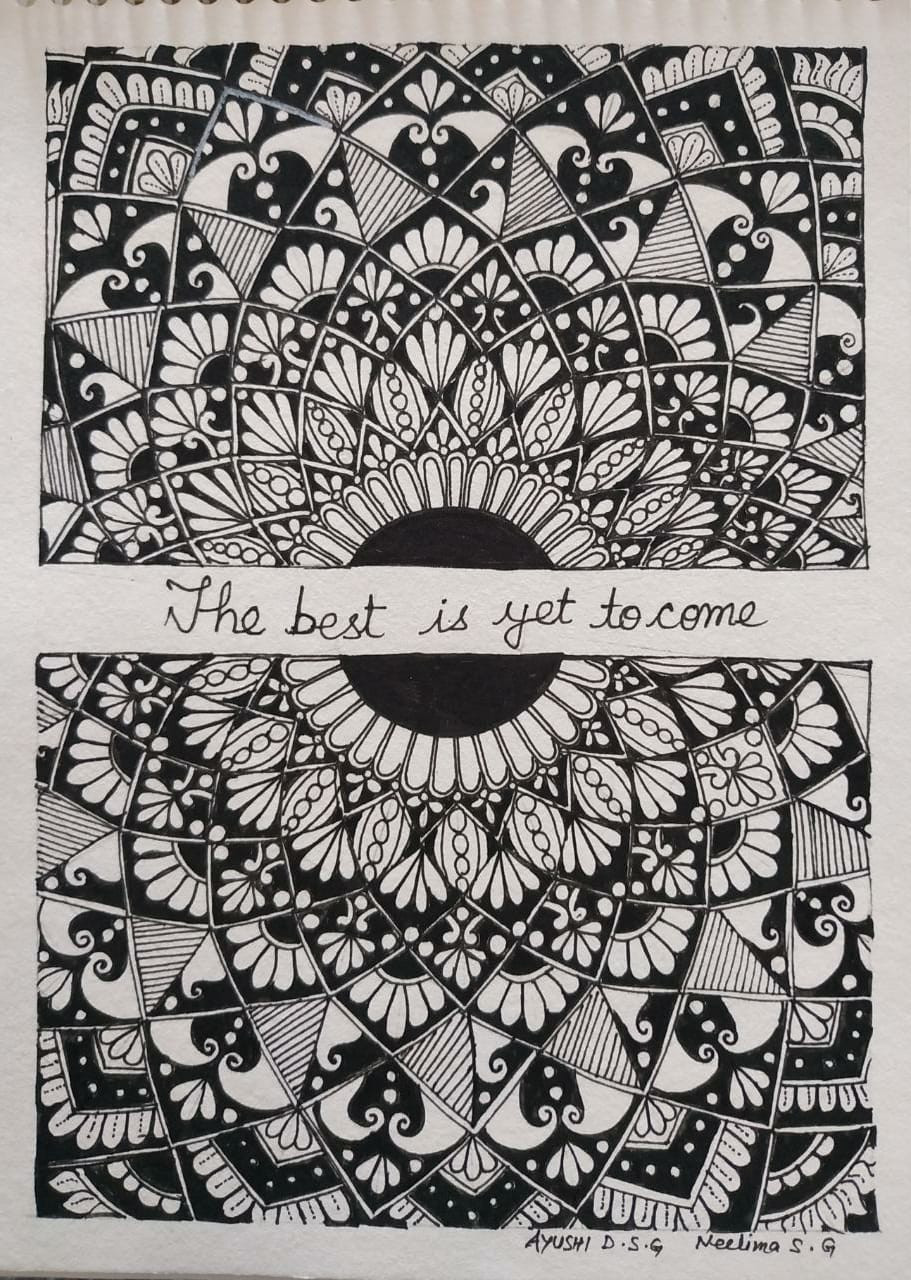 The best is yet to come
AYUSHI D.S.G Neelima S.G